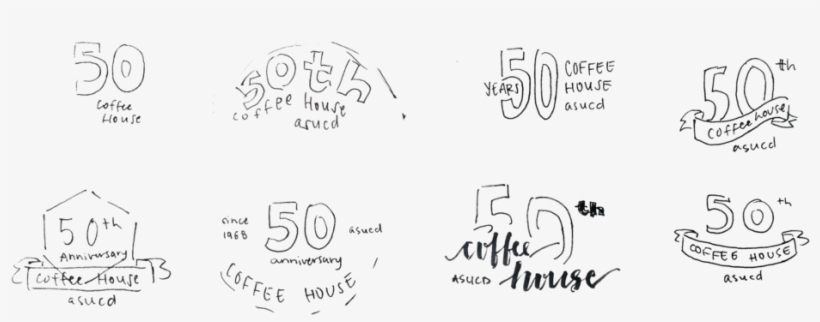 50
Coffee
House
50th
coffee House
asucd
50
YEARS
COFFEE
HOUSE
asucd
50th
Coffee house
asucd
50th
Anniversary
Coffee House
asucd
since
1968
50
asucd
anniversary
COFFEE HOUSE
50th
coffee
ASUCD
house
50th
COFFEE HOUSE
asucd